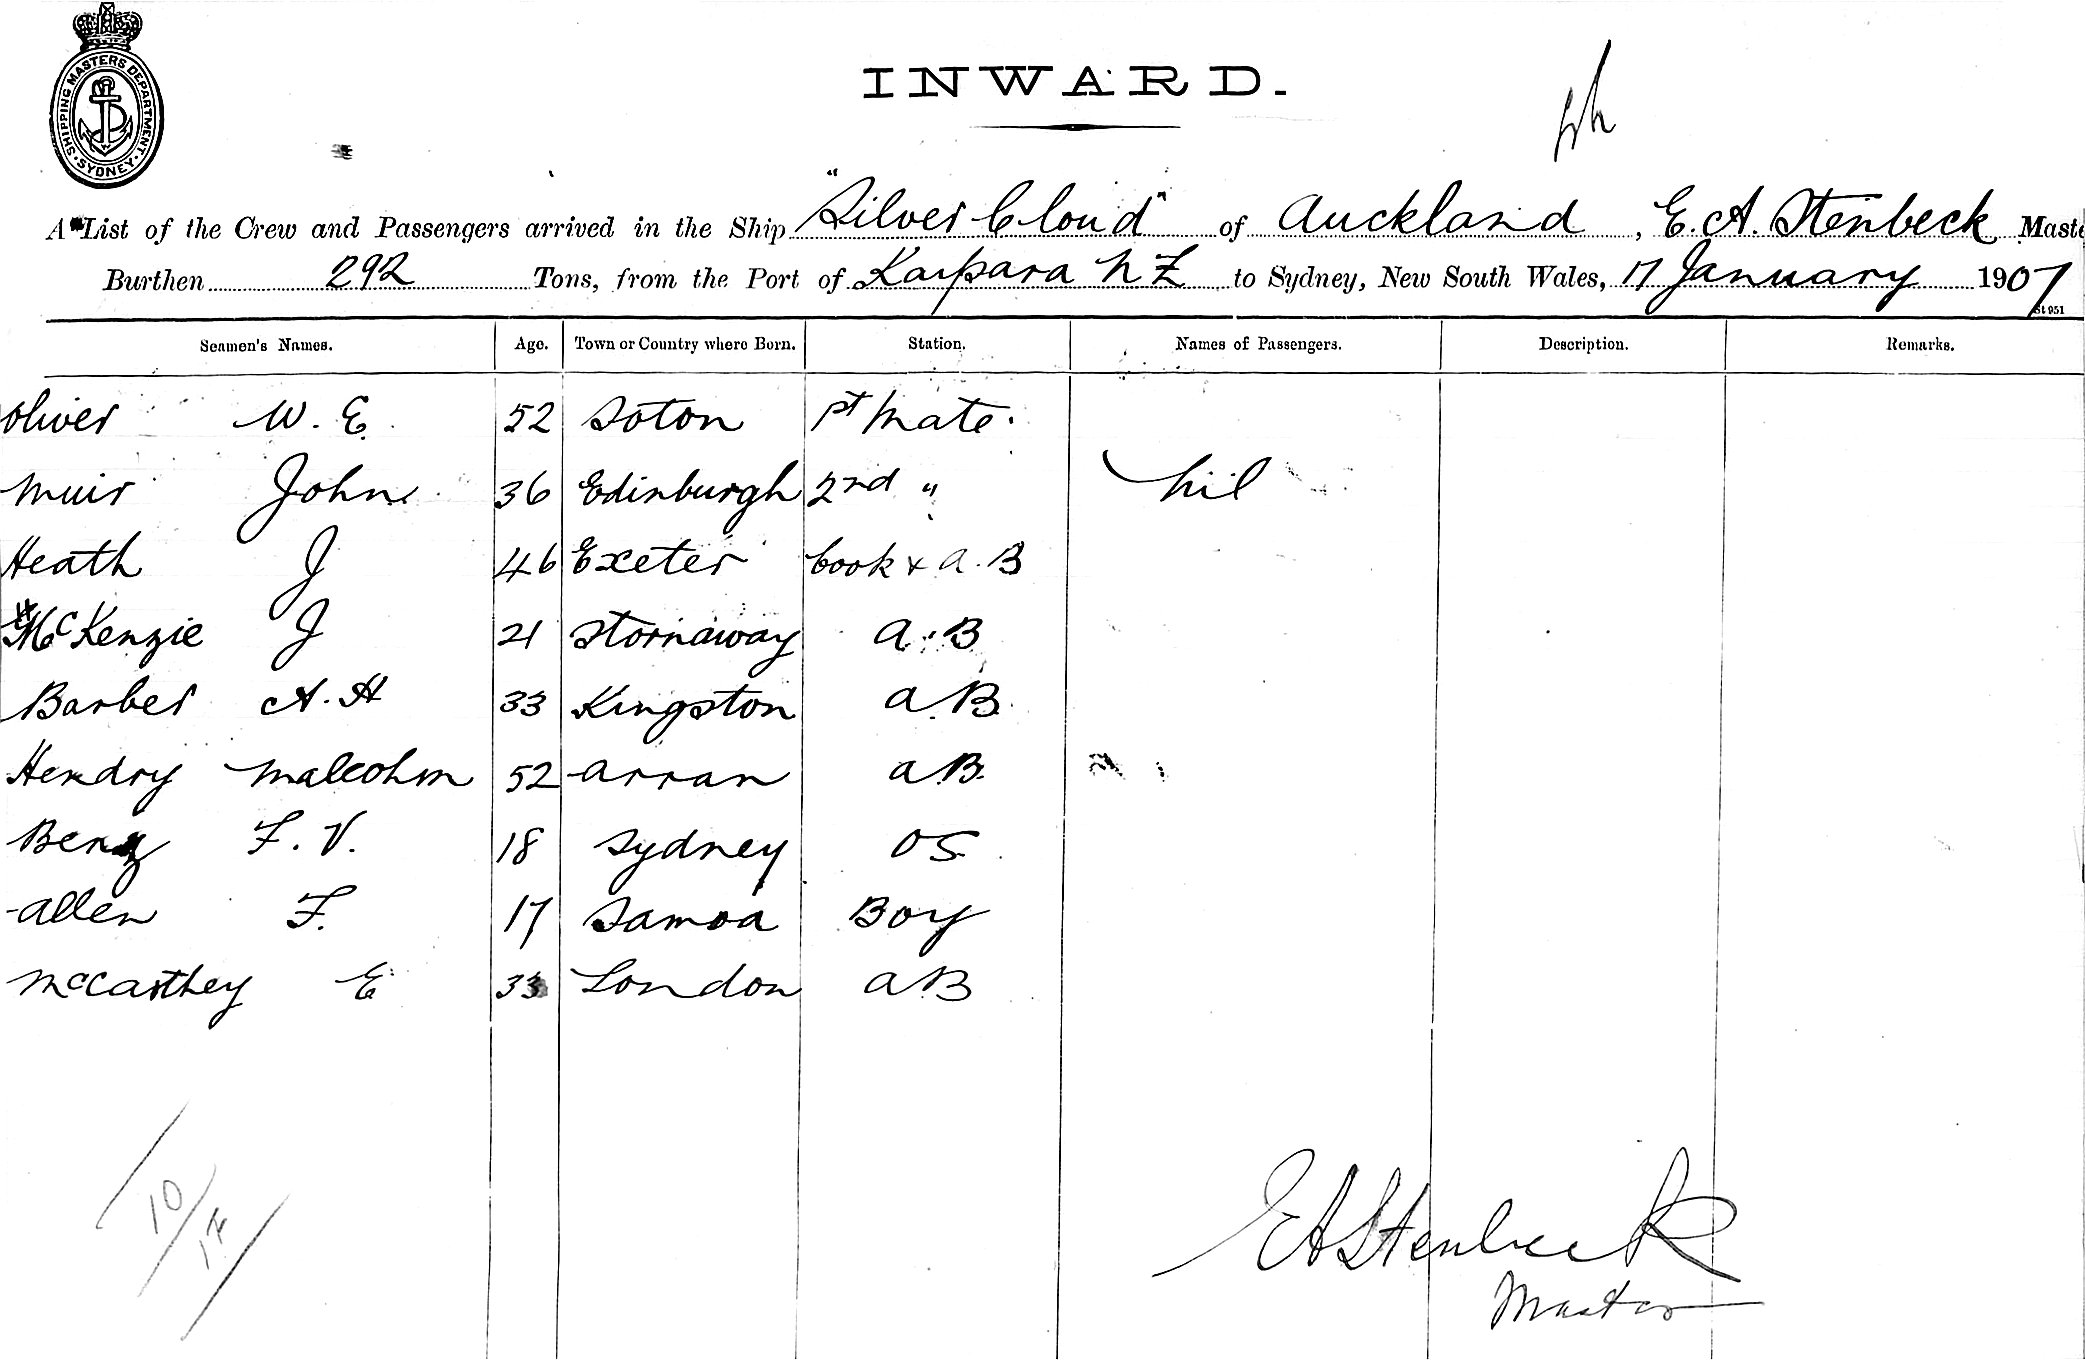 SHIPPING MASTERS DEPARTMENT. SYDNEY.
INWARD.
A List of the Crew and Passengers arrived in the Ship "Silver Cloud" of Auckland, E. A. Stenbeck Maste
Burthen 292 Tons, from the Port of Kaipara NZ to Sydney, New South Wales, 17 January 1907
St 951
Seamen's Names. Age. Town or Country where Born. Station. Names of Passengers. Description. Remarks.
Oliver W. E. 52 Soton 1st Mate.
Muir John 36 Edinburgh 2nd " Nil
Heath J 46 Exeter Cook & A.B
McKenzie J 21 Stornaway A.B
Barber A.H 33 Kingston AB
Hendry Malcohm 52 Arran AB
Benz F. V. 18 Sydney OS
Allen F. 17 Samoa Boy
McCarthey E 33 London AB
10/17
EAStenbeck
Master